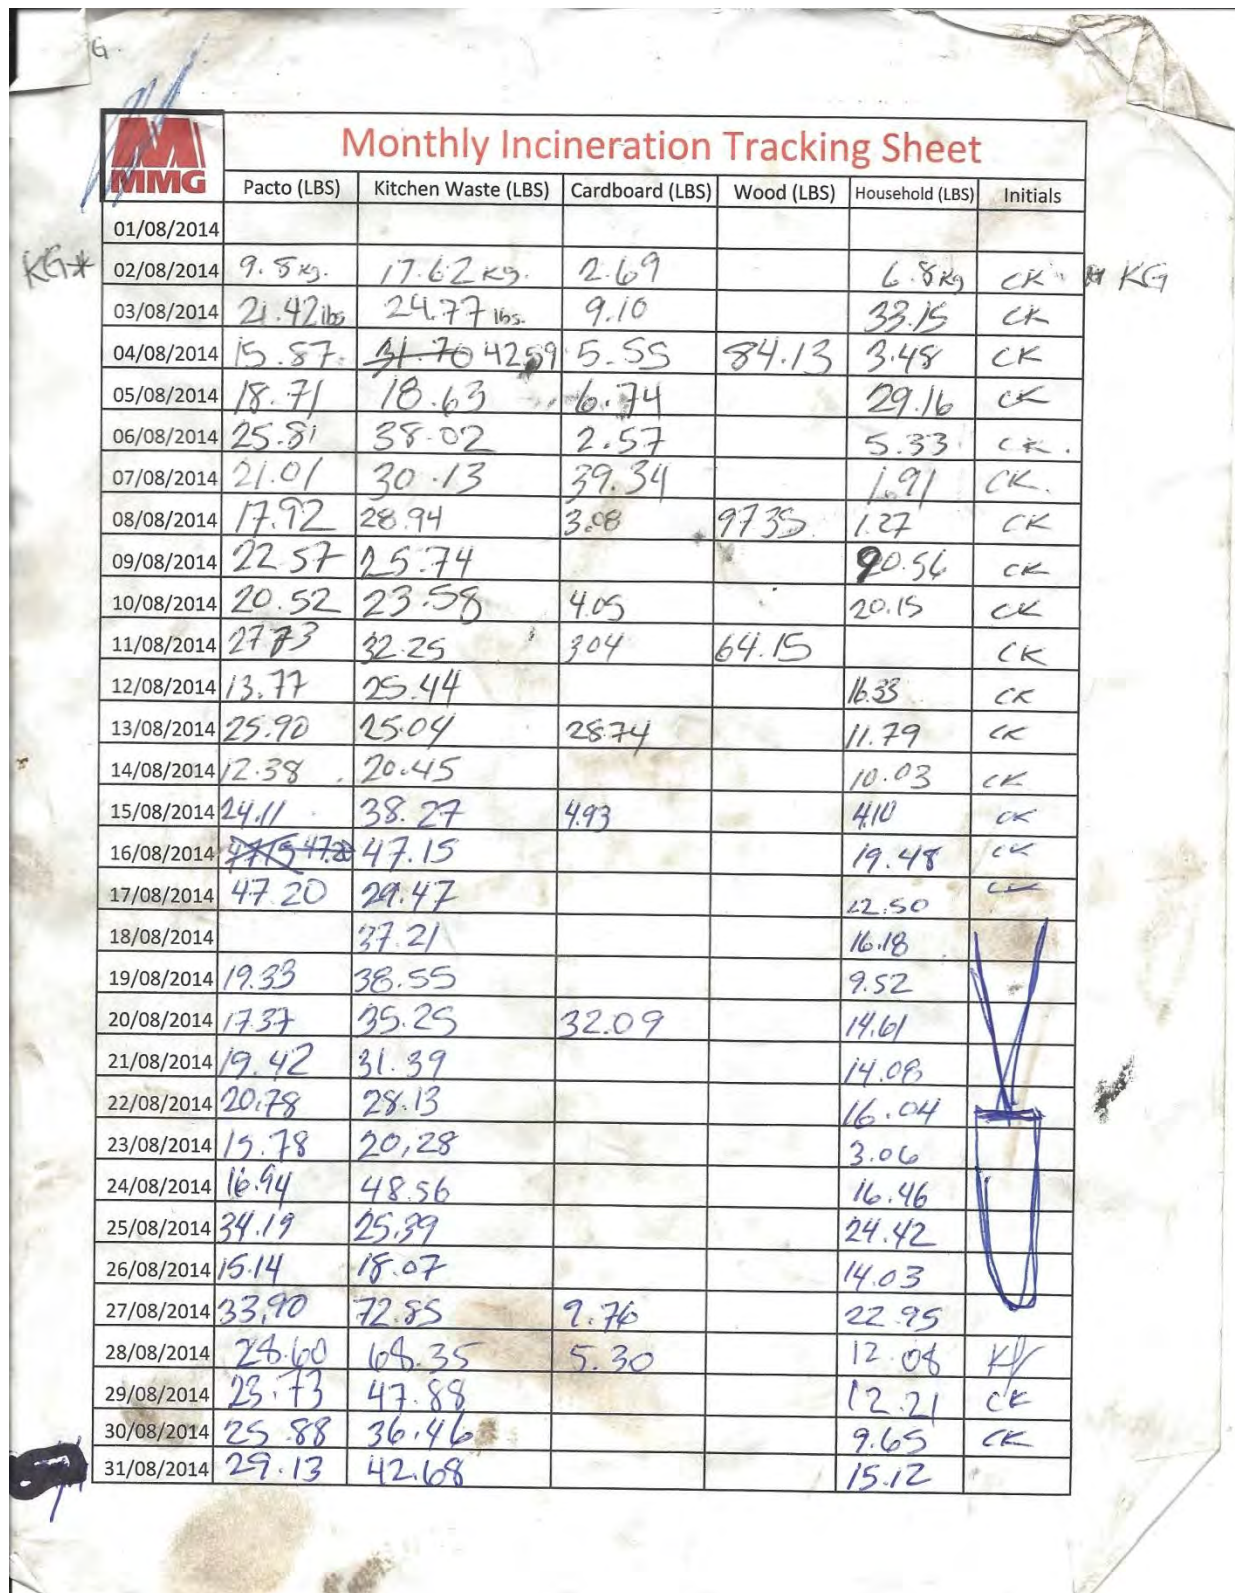 G.
MMG
Monthly Incineration Tracking Sheet
Pacto (LBS) Kitchen Waste (LBS) Cardboard (LBS) Wood (LBS) Household (LBS) Initials
01/08/2014
KG* 02/08/2014 9.8 kg. 17.62 kg. 2.69 6.8 kg CK * KG
03/08/2014 21.42 lbs 24.77 lbs. 9.10 33.15 CK
04/08/2014 15.87 31.70 42.59 5.55 84.13 3.48 CK
05/08/2014 18.71 18.63 6.74 29.16 CK
06/08/2014 25.81 38.02 2.57 5.33 CK.
07/08/2014 21.01 30.13 39.34 1.91 CK.
08/08/2014 17.92 28.94 3.08 9735 1.27 CK
09/08/2014 22.57 25.74 20.56 CK
10/08/2014 20.52 23.58 4.05 20.15 CK
11/08/2014 27.73 32.25 304 64.15 CK
12/08/2014 13.77 25.44 16.33 CK
13/08/2014 25.90 25.04 28.74 11.79 CK
14/08/2014 12.38 20.45 10.03 CK
15/08/2014 24.11 38.27 4.93 4.10 CK
16/08/2014 47.15 47.20 47.15 19.48 CK
17/08/2014 47.20 29.47 12.50 CK
18/08/2014 37.21 16.18
19/08/2014 19.33 38.55 9.52
20/08/2014 17.37 35.25 32.09 14.61
21/08/2014 19.42 31.39 14.08
22/08/2014 20.78 28.13 16.04
23/08/2014 15.78 20,28 3.06
24/08/2014 16.94 48.56 16.46
25/08/2014 34.19 25.39 24.42
26/08/2014 15.14 18.07 14.03
27/08/2014 33,90 72.85 9.76 22.95
28/08/2014 28.60 68.35 5.30 12.08
29/08/2014 23.73 47.88 12.21 CK
30/08/2014 25.88 36.46 9.65 CK
31/08/2014 29.13 42.68 15.12